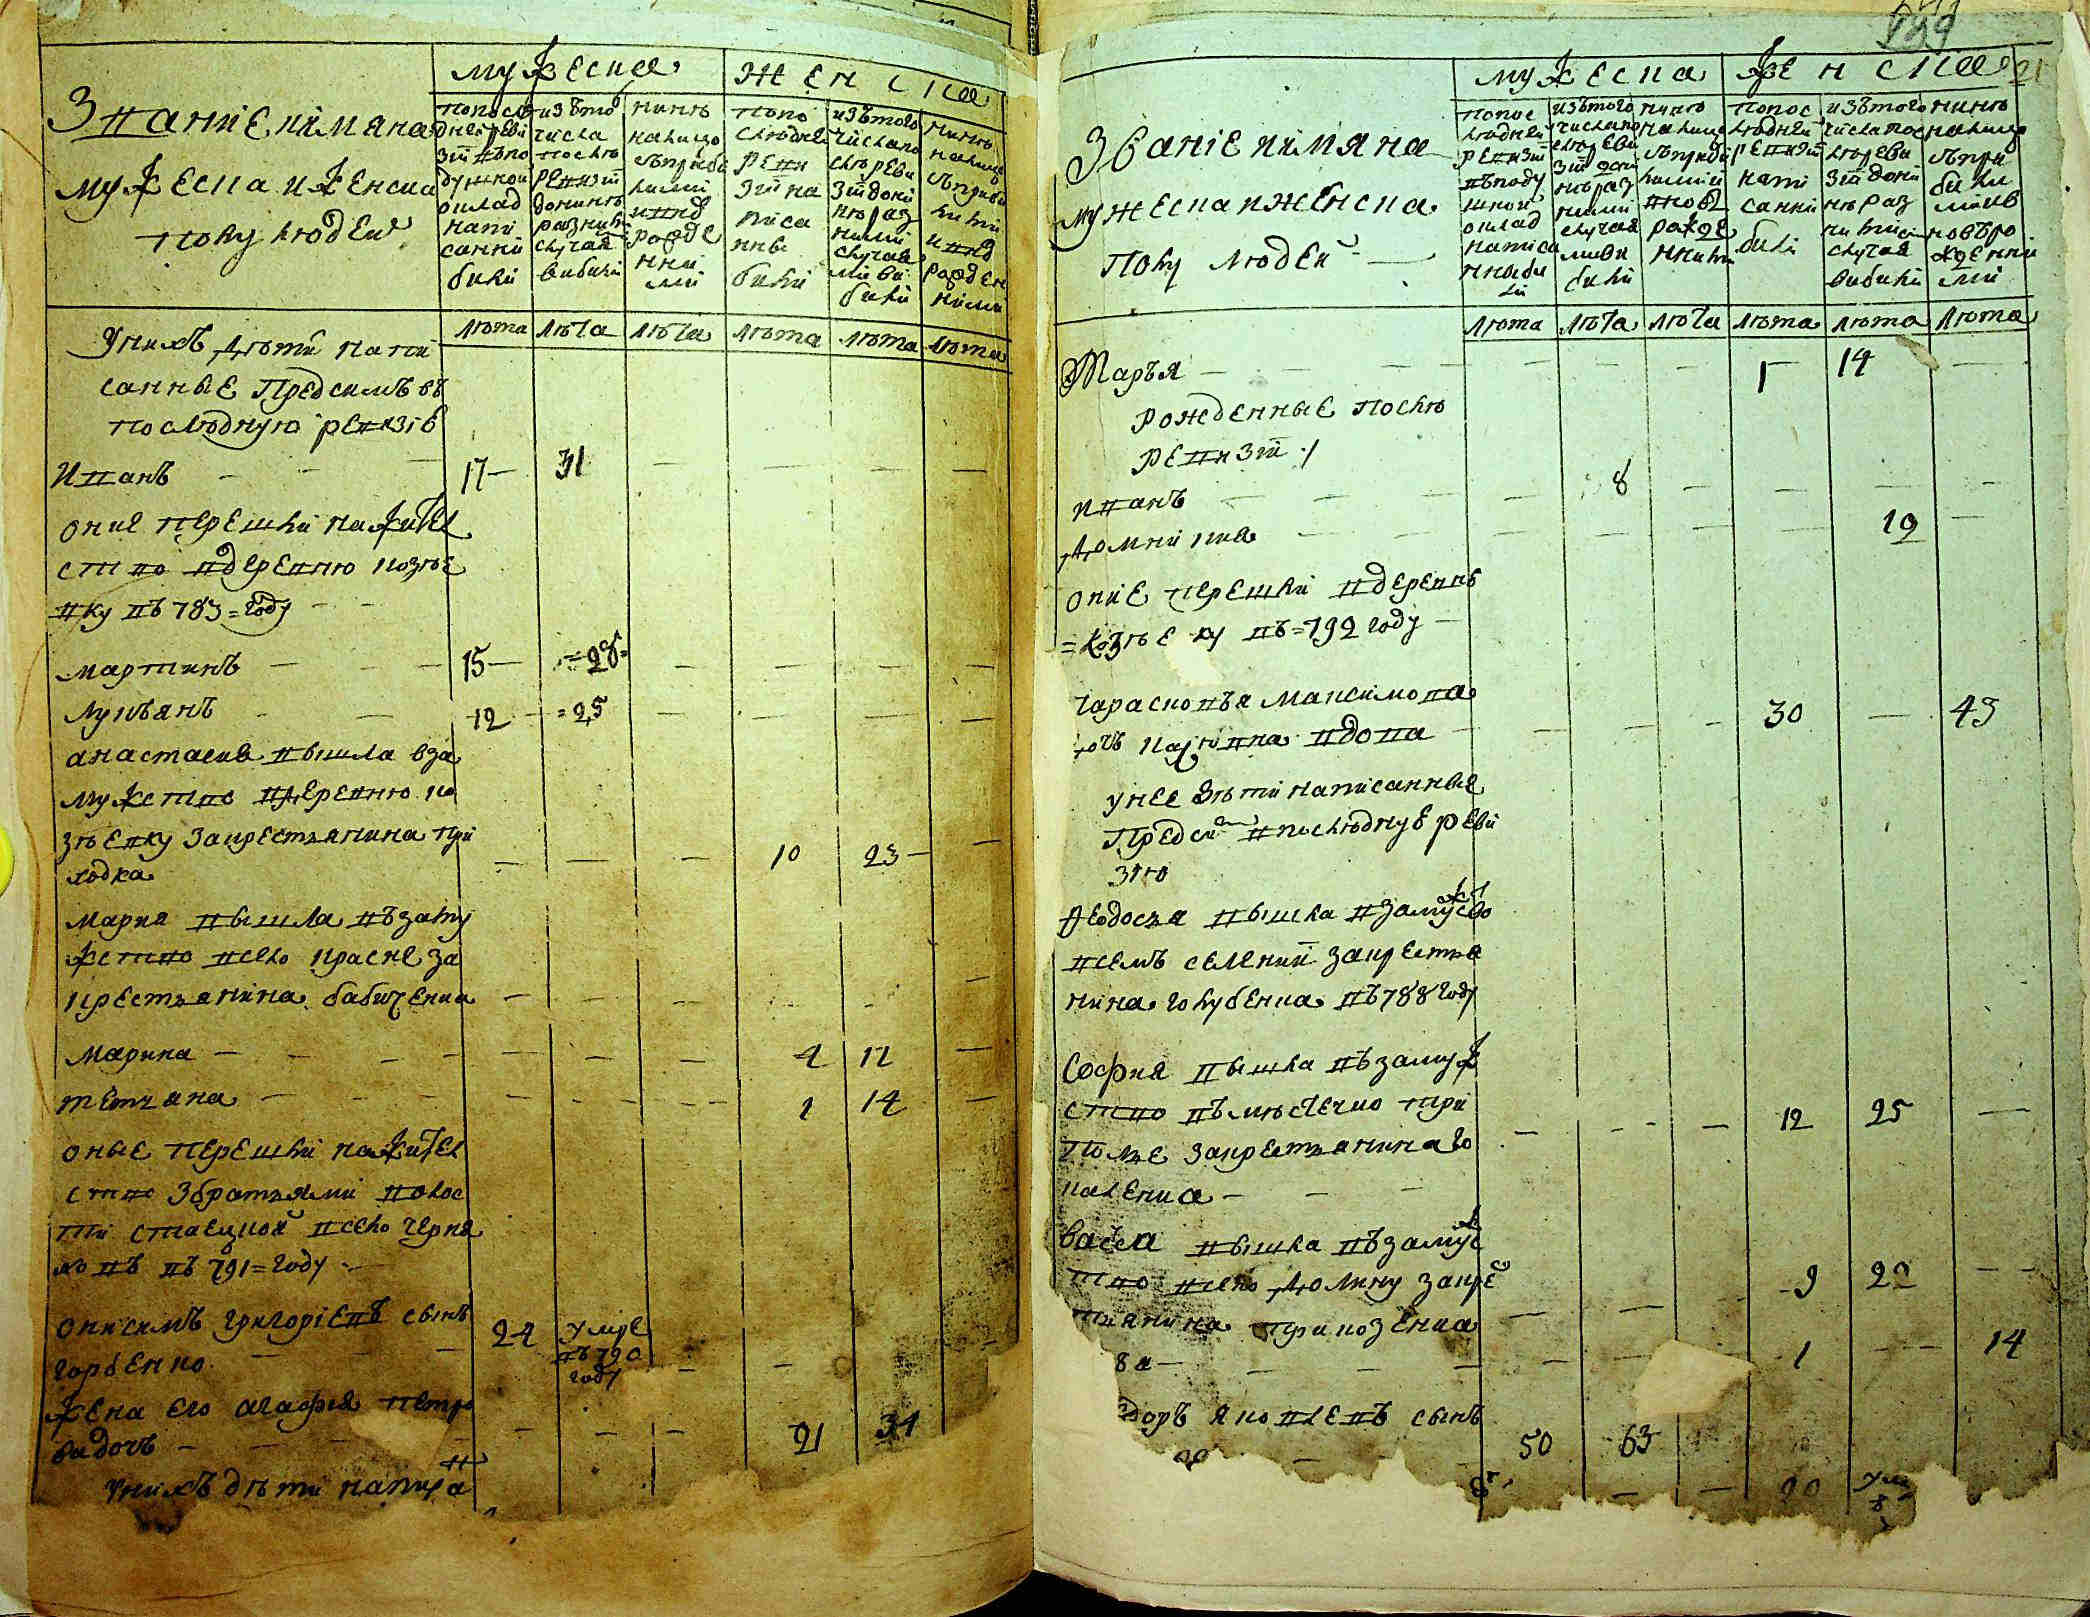 Званіе иимяна
мужеска иженска
полу людей
мужеска
женска
попосле
дней реви
зіи въпо
душной
оклад
напи
санни
били
изъто
числа
послѣ
ревизіи
донинѣ
разнихъ
случая
вибили
нинѣ
налицо
съприби
лими
и
рожде
нни
ми
попо
слѣдне
реви
зіи на
писа
нни
били
изътого
числапо
слѣреви
зіи дони
нѣ раз
ними
случая
ми ви
били
нинѣ
налицо
съприби
лими
рожден
ними
лѣта лѣта лѣта лѣта лѣта лѣта
Унихъ дѣти напи
санные Предсимъ въ
послѣднуюю ревизіе
Иванъ 17 31
оние перешли нажител
ство вдеревню козѣе
вку въ 783=году
мартинъ 15 28
лукъянъ 12 25
анастасия вышла вза
мужство вдеревню ко
зѣевку закрестьянина при
ходка 10 23
мария вышла възаму
жство всело красне за
крестьянина бабиченка
Марина 4 17
тетяна 1 14
оные перешли нажител
ство збратьями волос
ти стаецкой всело черня
ховъ въ 791=году
онисимъ григоріевъ сынъ
горбенко 24 умре
въ790
году
жена его агафия петро
ва дочъ 21 34
Унихъ дѣти написа
21
мужеска
женска
Званіе иимяна
мужеска иженска
полу людей
попос
лѣдней
ревизіи
въподу
шной
оклад
написа
нныби
ли
изътого
числапо
слѣреви
зіи дони
нѣраз
ними
случая
миви
били
нинѣ
налицо
съприби
лими
новъ
рожде
нними
попос
лѣдней
ревизіи
напи
санни
били
изътого
числапос
лѣреви
зіи дони
нѣраз
ними
случая
вибили
нинѣ
налицо
съпри
били
ми ив
новъро
жденни
ми
лѣта лѣта лѣта лѣта лѣта лѣта
Маръя 1 14
Рожденные послѣ
Ревизіи
иванъ 8
домникия 19
оние перешли вдеревнѣ
=козѣевку въ=792 году
Парасковъя Максимова
дочъ вдова 30 43
унее дѣти написанные
Предсим впослѣднуе реви
зію
Феодосья вышла взамуство
всемъ селении закрестья
нина голубенка въ788году
София вышла възамуж
ство въмѣстечко при
полье закрестьянина ко
валенка 12 25
васса вышла възамус
тво всело долину закре
тянина приказенка 9 22
ва 1 14
доръ яковлевъ сынъ
50 63